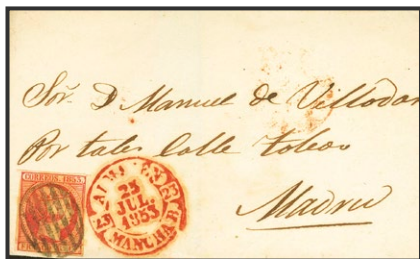 Sor. D Manuel de Villodas
Por tales Calle Toledo
Madrid
CORREOS. 1853.
25
JUL.
1853
MANCHA B.